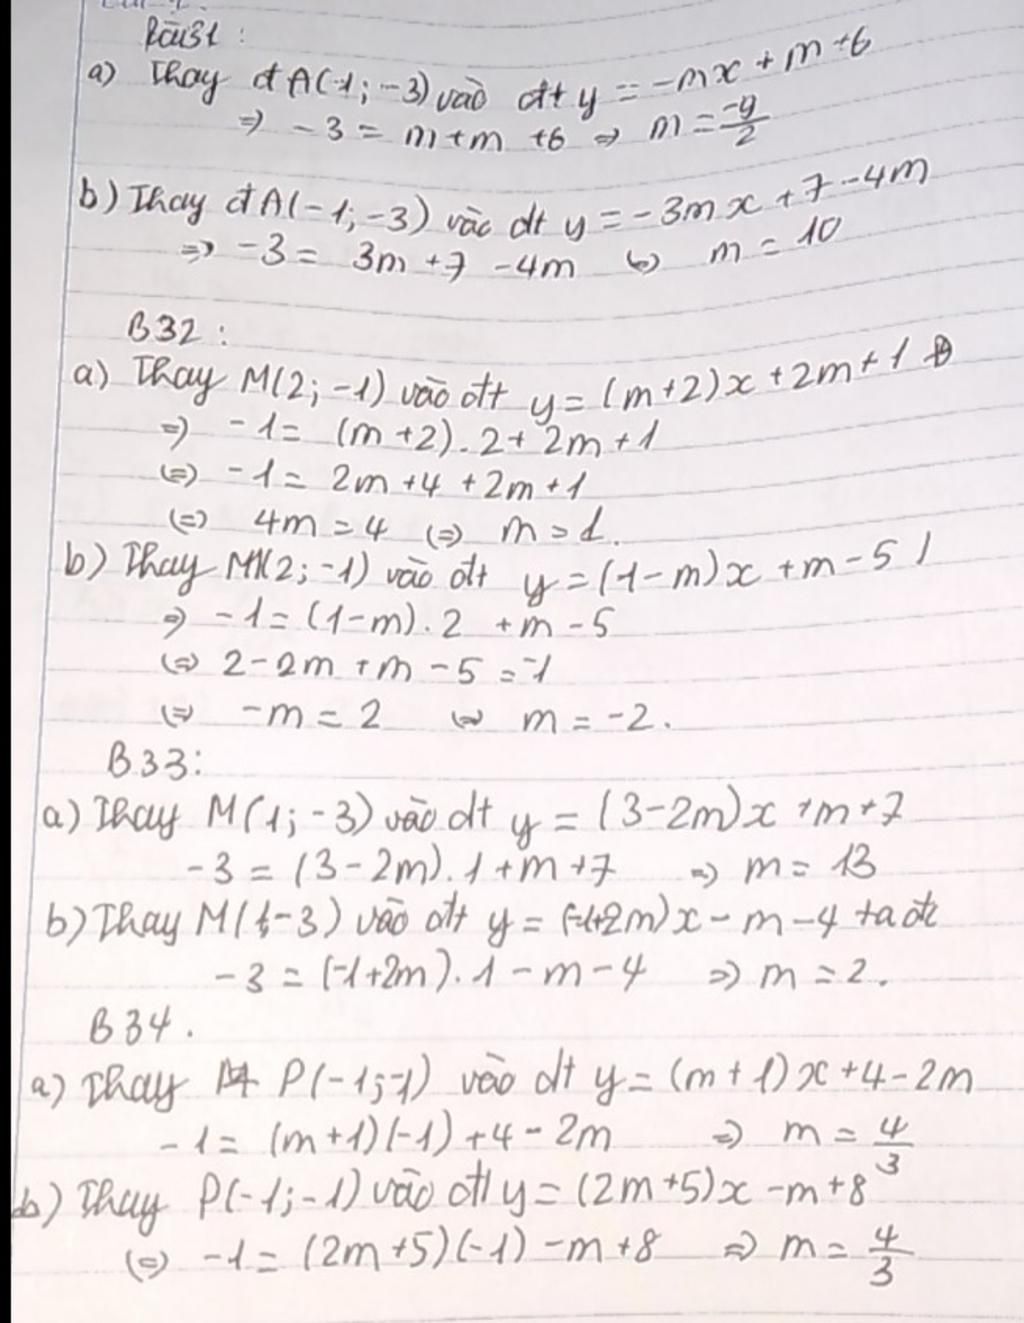 Bài 31 :
a) Thay đ A(-1; -3) vào đt y = -mx + m + 6
=> -3 = m + m + 6 => m = -9/2
b) Thay đ A(-1; -3) vào đt y = -3mx + 7 - 4m
=> -3 = 3m + 7 - 4m (=) m = 10
B32 :
a) Thay M(2; -1) vào đt y = (m+2)x + 2m + 1
=) -1 = (m+2).2 + 2m + 1
(=) -1 = 2m + 4 + 2m + 1
(=) 4m = 4 (=) m = 1.
b) Thay M(2; -1) vào đt y = (1-m)x + m - 5
=) -1 = (1-m).2 + m - 5
(=) 2 - 2m + m - 5 = -1
(=) -m = 2 (=) m = -2.
B33:
a) Thay M(1; -3) vào đt y = (3-2m)x + m + 7
-3 = (3-2m).1 + m + 7 =) m = 13
b) Thay M(1; -3) vào đt y = (-1+2m)x - m - 4 ta đc
-3 = (-1+2m).1 - m - 4 => m = 2.
B34.
a) Thay P(-1; -1) vào đt y = (m+1)x + 4 - 2m
-1 = (m+1)(-1) + 4 - 2m => m = 4/3
b) Thay P(-1; -1) vào đt y = (2m+5)x - m + 8
(=) -1 = (2m+5)(-1) - m + 8 => m = 4/3